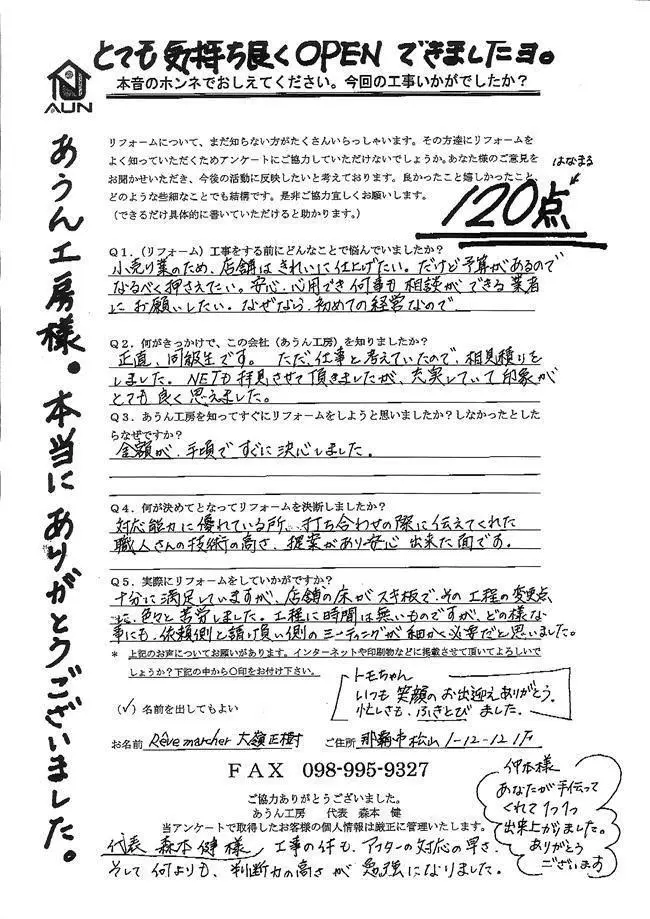 とても気持ち良くOPENできましたヨ。
AUN
本音のホンネでおしえてください。今回の工事いかがでしたか？
あうん工房様。本当にありがとうございました。
リフォームについて、まだ知らない方がたくさんいらっしゃいます。その方達にリフォームを
よく知っていただくためアンケートにご協力していただけないでしょうか。あなた様のご意見を
お聞かせいただき、今後の活動に反映したいと考えております。良かったこと嬉しかったこと、
どのような些細なことでも結構です。是非ご協力宜しくお願いします。
（できるだけ具体的に書いていただけると助かります。）
はなまる
120点
Q１．（リフォーム）工事をする前にどんなことで悩んでいましたか？
小売り業のため、店舗はきれいに仕上げたい。だけど予算があるので
なるべく押さえたい。安心、心用でき何事も相談ができる業者
にお願いしたい。なぜなら、初めての経営なので
Q２．何がきっかけで、この会社（あうん工房）を知りましたか？
正直、同級生です。ただ、仕事と考えていたので、相見積りを
しました。NETも拝見させて頂きましたが、充実していて印象が
とても良く思えました。
Q３．あうん工房を知ってすぐにリフォームをしようと思いましたか？しなかったとした
らなぜですか？
金額が、手頃ですぐに決心しました。
Q４．何が決めてとなってリフォームを決断しましたか？
対応能力に優れている所、打ち合わせの際に伝えてくれた
職人さんの技術の高さ、提案があり安心出来た面です。
Q５．実際にリフォームをしていかがですか？
十分に満足していますが、店舗の床がスキ板で、その工程の変更点
に、色々と苦労しました。工程に時間は無いものですが、どの様な
事にも、依頼側と請け負い側のミーティングが細かく必要だと思いました。
＊ 上記のお声についてお願いがあります。インターネットや印刷物などに掲載させて頂いてよろしいで
しょうか？下記の中から○印をお付け下さい。
トモちゃん
いつも笑顔のお出迎えありがとう。
忙しさも、ふきとびました。
（√）名前を出してもよい
お名前 Rêve marcher 大嶺正樹 ご住所 那覇市松山1-12-12 1F
FAX 098-995-9327
ご協力ありがとうございました。
あうん工房 代表 森本 健
当アンケートで取得したお客様の個人情報は厳正に管理いたします。
仲本様
あなたが手伝って
くれて1つ1つ
出来上がりました。
ありがとう
ございます
代表 森本 健様、工事の件も、アフターの対応の早さ、
そして何よりも、判断力の高さが勉強になりました。